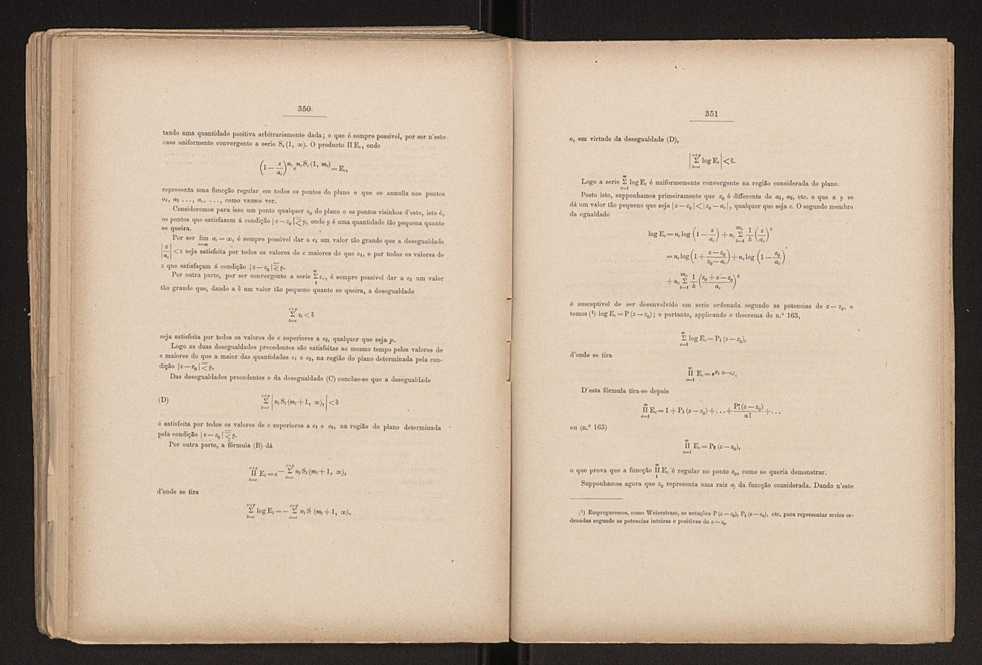 350
tando uma quantidade positiva arbitrariamente dada; o que é sempre possivel, por ser n'este
caso uniformemente convergente a serie S_c (1, ∞). O producto Π E_c, onde
(1 − z/a_c)^{n_c} e^{n_c S_c (1, m_c)} = E_c,
representa uma funcção regular em todos os pontos do plano e que se annulla nos pontos
a_1, a_2 ..., a_c, ..., como vamos ver.
Consideremos para isso um ponto qualquer z_0 do plano e os pontos visinhos d'este, isto é,
os pontos que satisfazem á condição |z − z_0| ≦ ρ, onde ρ é uma quantidade tão pequena quanto
se queira.
Por ser lim a_c = ∞, é sempre possivel dar a c_1 um valor tão grande que a desegualdade
c=∞
|z/a_c| < ε seja satisfeita por todos os valores de c maiores do que c_1, e por todos os valores de
z que satisfaçam á condição |z − z_0| ≦ ρ.
Por outra parte, por ser convergente a serie Σ_1^∞ v_c, é sempre possivel dar a c_2 um valor
tão grande que, dando a δ um valor tão pequeno quanto se queira, a desegualdade
Σ_{t=c}^{c+p} v_t < δ
seja satisfeita por todos os valores de c superiores a c_2, qualquer que seja p.
Logo as duas desegualdades precedentes são satisfeitas ao mesmo tempo pelos valores de
c maiores do que a maior das quantidades c_1 e c_2, na região do plano determinada pela con-
dição |z − z_0| ≦ ρ.
Das desegualdades precedentes e da desegualdade (C) conclue-se que a desegualdade
(D) Σ_{t=c}^{c+p} | n_t S_t (m_t + 1, ∞), | < δ
é satisfeita por todos os valores de c superiores a c_1 e c_2, na região do plano determinada
pela condição |z − z_0| ≦ ρ.
Por outra parte, a fórmula (B) dá
Π_{t=c}^{c+p} E_t = e^{− Σ_{t=c}^{c+p} n_t S_t (m_t + 1, ∞)},
d'onde se tira
Σ_{t=c}^{c+p} log E_t = − Σ_{t=c}^{c+p} n_t S_t (m_t + 1, ∞),
351
e, em virtude da desegualdade (D),
| Σ_{t=c}^{c+p} log E_t | < δ.
Logo a serie Σ_{c=1}^∞ log E_c é uniformemente convergente na região considerada do plano.
Posto isto, supponhamos primeiramente que z_0 é differente de a_1, a_2, etc. e que a ρ se
dá um valor tão pequeno que seja |z − z_0| < |z_0 − a_c|, qualquer que seja c. O segundo membro
da egualdade
log E_c = n_c log (1 − z/a_c) + n_c Σ_{k=1}^{m_c} 1/k (z/a_c)^k
= n_c log (1 + (z − z_0)/(z_0 − a_c)) + n_c log (1 − z_0/a_c)
+ n_c Σ_{k=1}^{m_c} 1/k ((z_0 + z − z_0)/a_c)^k
é susceptivel de ser desenvolvido em serie ordenada segundo as potencias de z − z_0, e
temos (¹) log E_c = P (z − z_0); e portanto, applicando o theorema do n.º 163,
Σ_{c=1}^∞ log E_c = P_1 (z − z_0),
d'onde se tira
Π_{c=1}^∞ E_c = e^{P_1 (z−z_0)}.
D'esta fórmula tira-se depois
Π_{c=1}^∞ E_c = 1 + P_1 (z − z_0) + ... + P_1^n (z − z_0)/n! + ...
ou (n.º 163)
Π_{c=1}^∞ E_c = P_2 (z − z_0),
o que prova que a funcção Π_1^∞ E_c é regular no ponto z_0, como se queria demonstrar.
Supponhamos agora que z_0 representa uma raiz a_j da funcção considerada. Dando n'este
(¹) Empregaremos, como Weierstrass, as notações P (z − z_0), P_1 (z − z_0), etc. para representar series or-
denadas segundo as potencias inteiras e positivas de z − z_0.